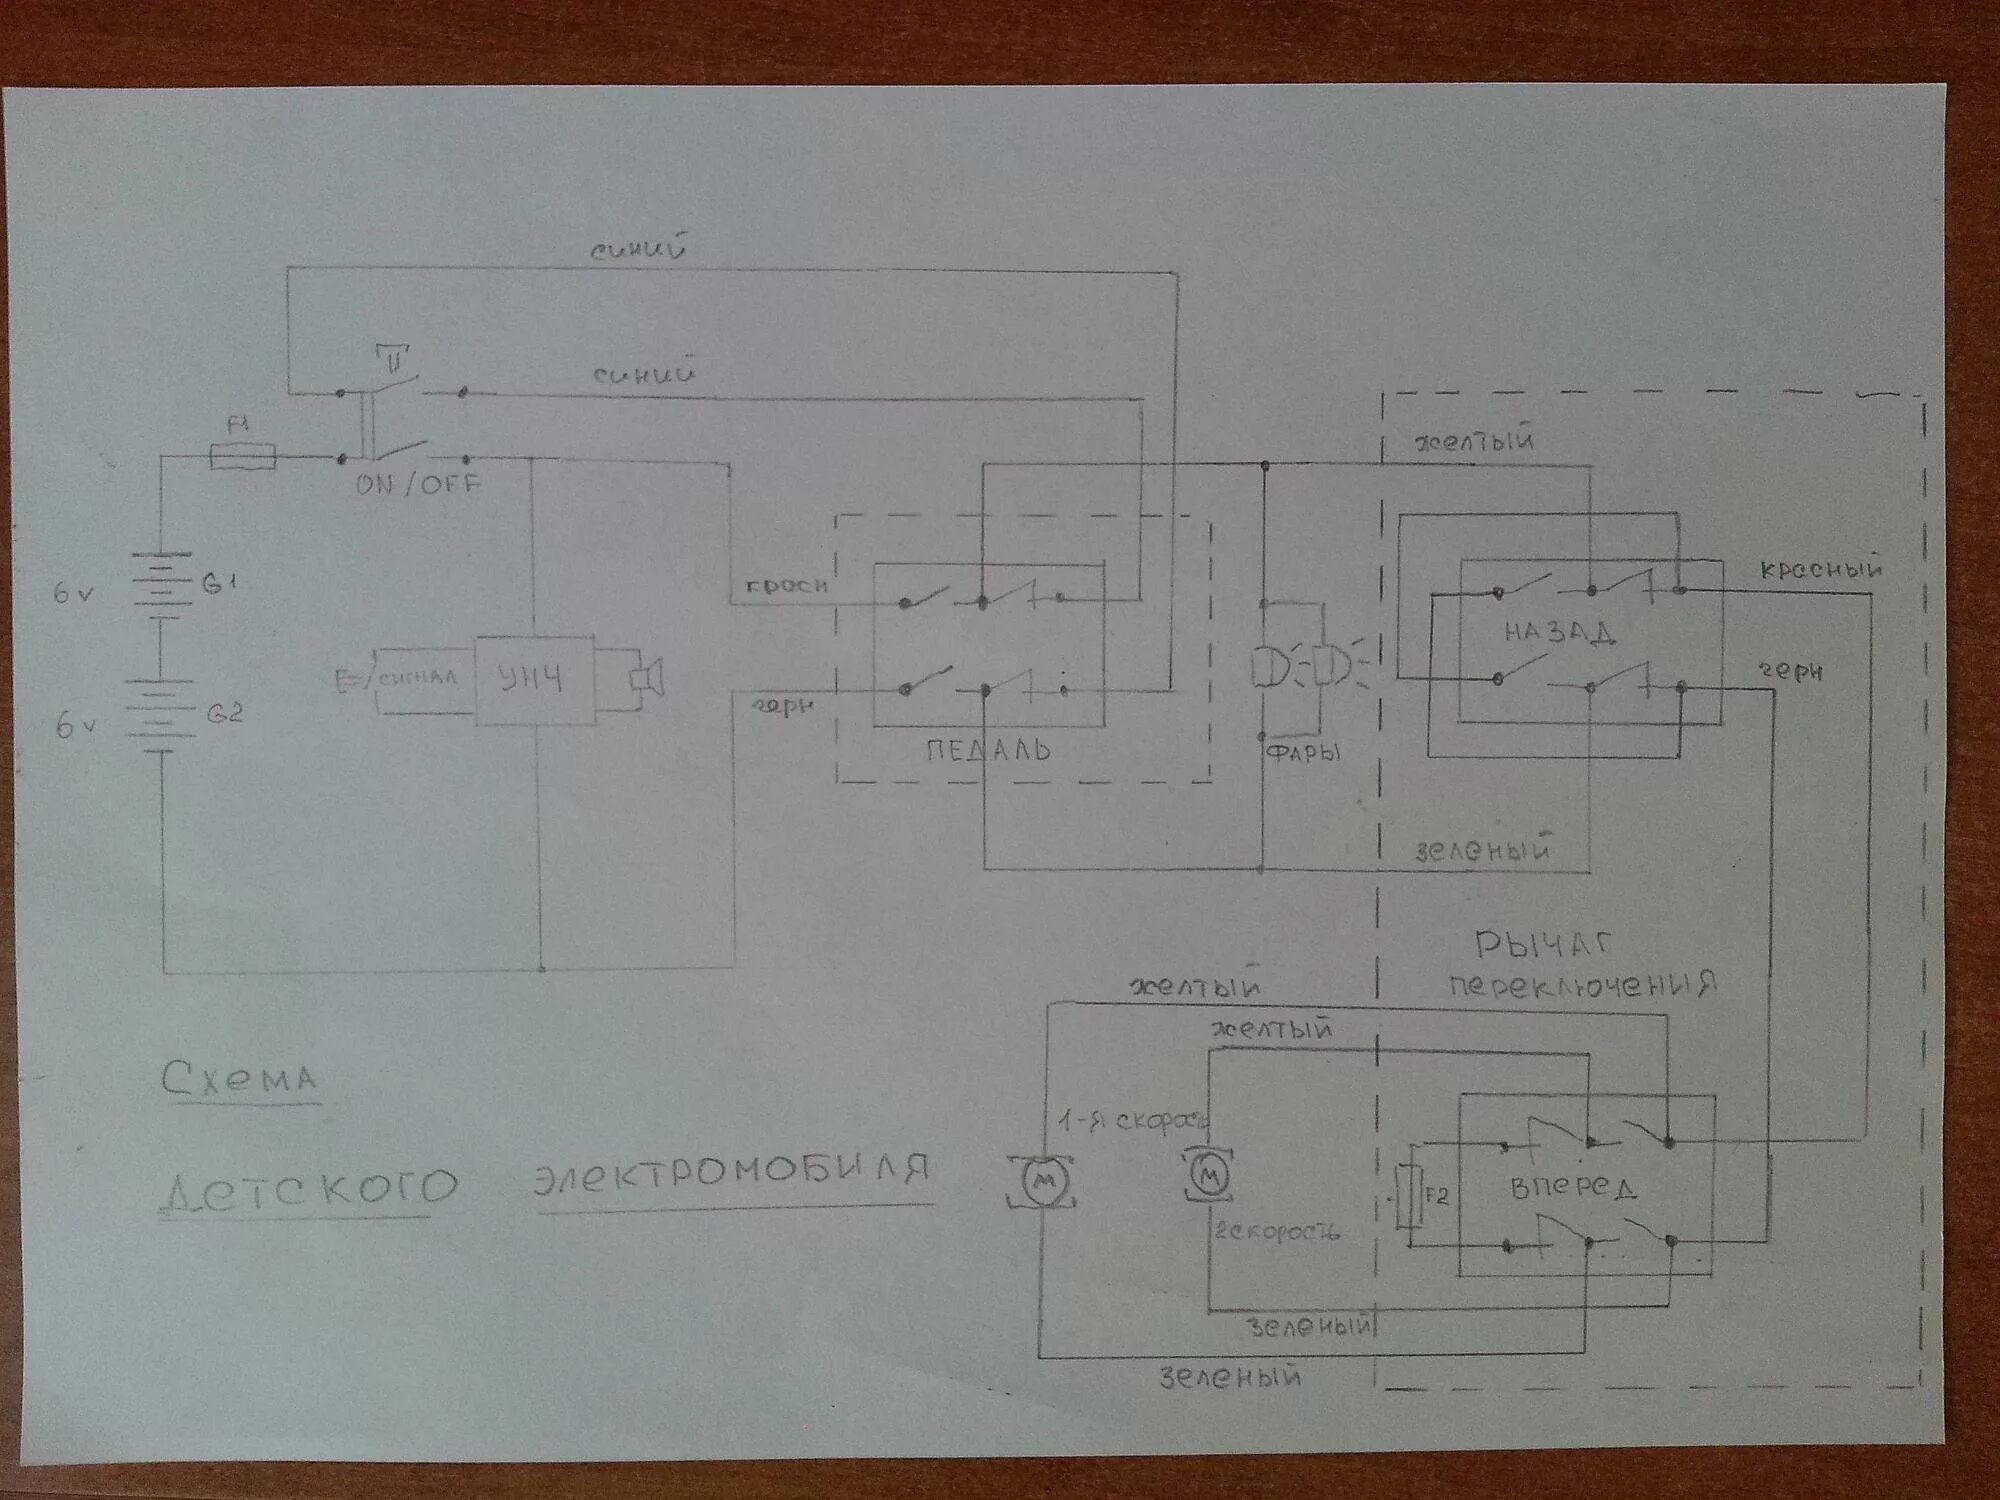 синий
синий
F1
ON/OFF
желтый
6v
G1
красн
красный
НАЗАД
сигнал
УНЧ
герн
герн
6v
G2
ПЕДАЛЬ
ФАРЫ
зеленый
РЫЧАГ
переключения
желтый
желтый
Схема
1-я скорость
М
М
Детского электромобиля
ВПЕРЕД
F2
2скорость
зеленый
зеленый